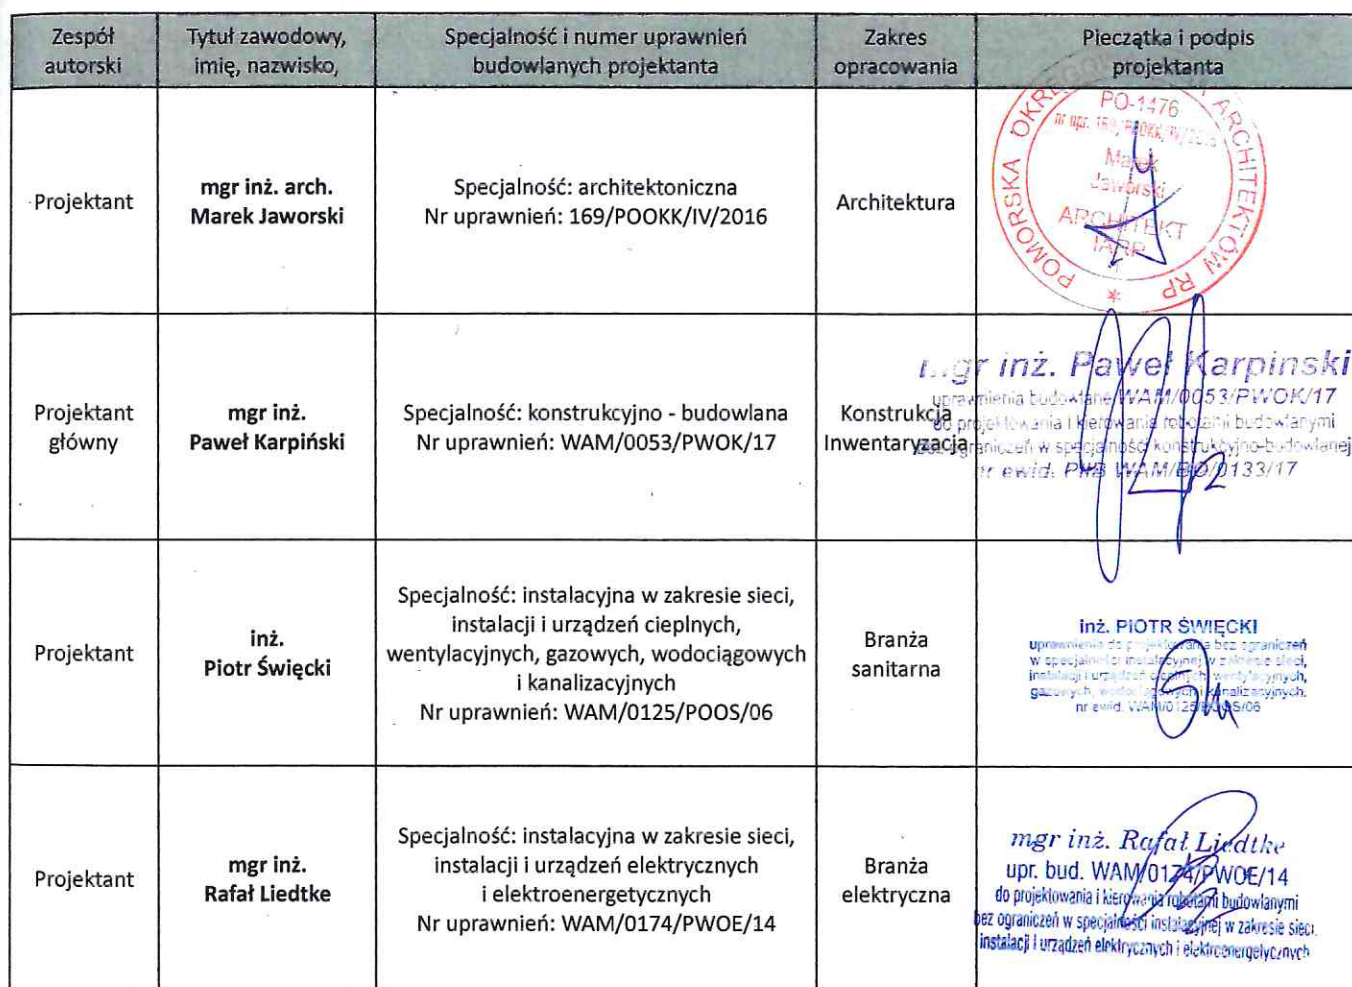 Zespół autorski
Tytuł zawodowy, imię, nazwisko,
Specjalność i numer uprawnień budowlanych projektanta
Zakres opracowania
Pieczątka i podpis projektanta
Projektant
mgr inż. arch.
Marek Jaworski
Specjalność: architektoniczna
Nr uprawnień: 169/POOKK/IV/2016
Architektura
POMORSKA OKRĘGOWA ARCHITEKTÓW RP
PO-1476
nr upr. 169/POOKK/IV/2016
Marek
Jaworski
ARCHITEKT
IARP
Projektant
główny
mgr inż.
Paweł Karpiński
Specjalność: konstrukcyjno - budowlana
Nr uprawnień: WAM/0053/PWOK/17
Konstrukcja
Inwentaryzacja
mgr inż. Paweł Karpinski
uprawnienia budowlane WAM/0053/PWOK/17
do projektowania i kierowania robotami budowlanymi
bez ograniczeń w specjalności konstrukcyjno-budowlanej
nr ewid. PIIB WAM/BO/0133/17
Projektant
inż.
Piotr Święcki
Specjalność: instalacyjna w zakresie sieci,
instalacji i urządzeń cieplnych,
wentylacyjnych, gazowych, wodociągowych
i kanalizacyjnych
Nr uprawnień: WAM/0125/POOS/06
Branża
sanitarna
inż. PIOTR ŚWIĘCKI
uprawnienia do projektowania bez ograniczeń
w specjalności instalacyjnej w zakresie sieci,
instalacji i urządzeń cieplnych, wentylacyjnych,
gazowych, wodociągowych i kanalizacyjnych.
nr ewid. WAM/0125/POOS/06
Projektant
mgr inż.
Rafał Liedtke
Specjalność: instalacyjna w zakresie sieci,
instalacji i urządzeń elektrycznych
i elektroenergetycznych
Nr uprawnień: WAM/0174/PWOE/14
Branża
elektryczna
mgr inż. Rafał Liedtke
upr. bud. WAM/0174/PWOE/14
do projektowania i kierowania robotami budowlanymi
bez ograniczeń w specjalności instalacyjnej w zakresie sieci,
instalacji i urządzeń elektrycznych i elektroenergetycznych